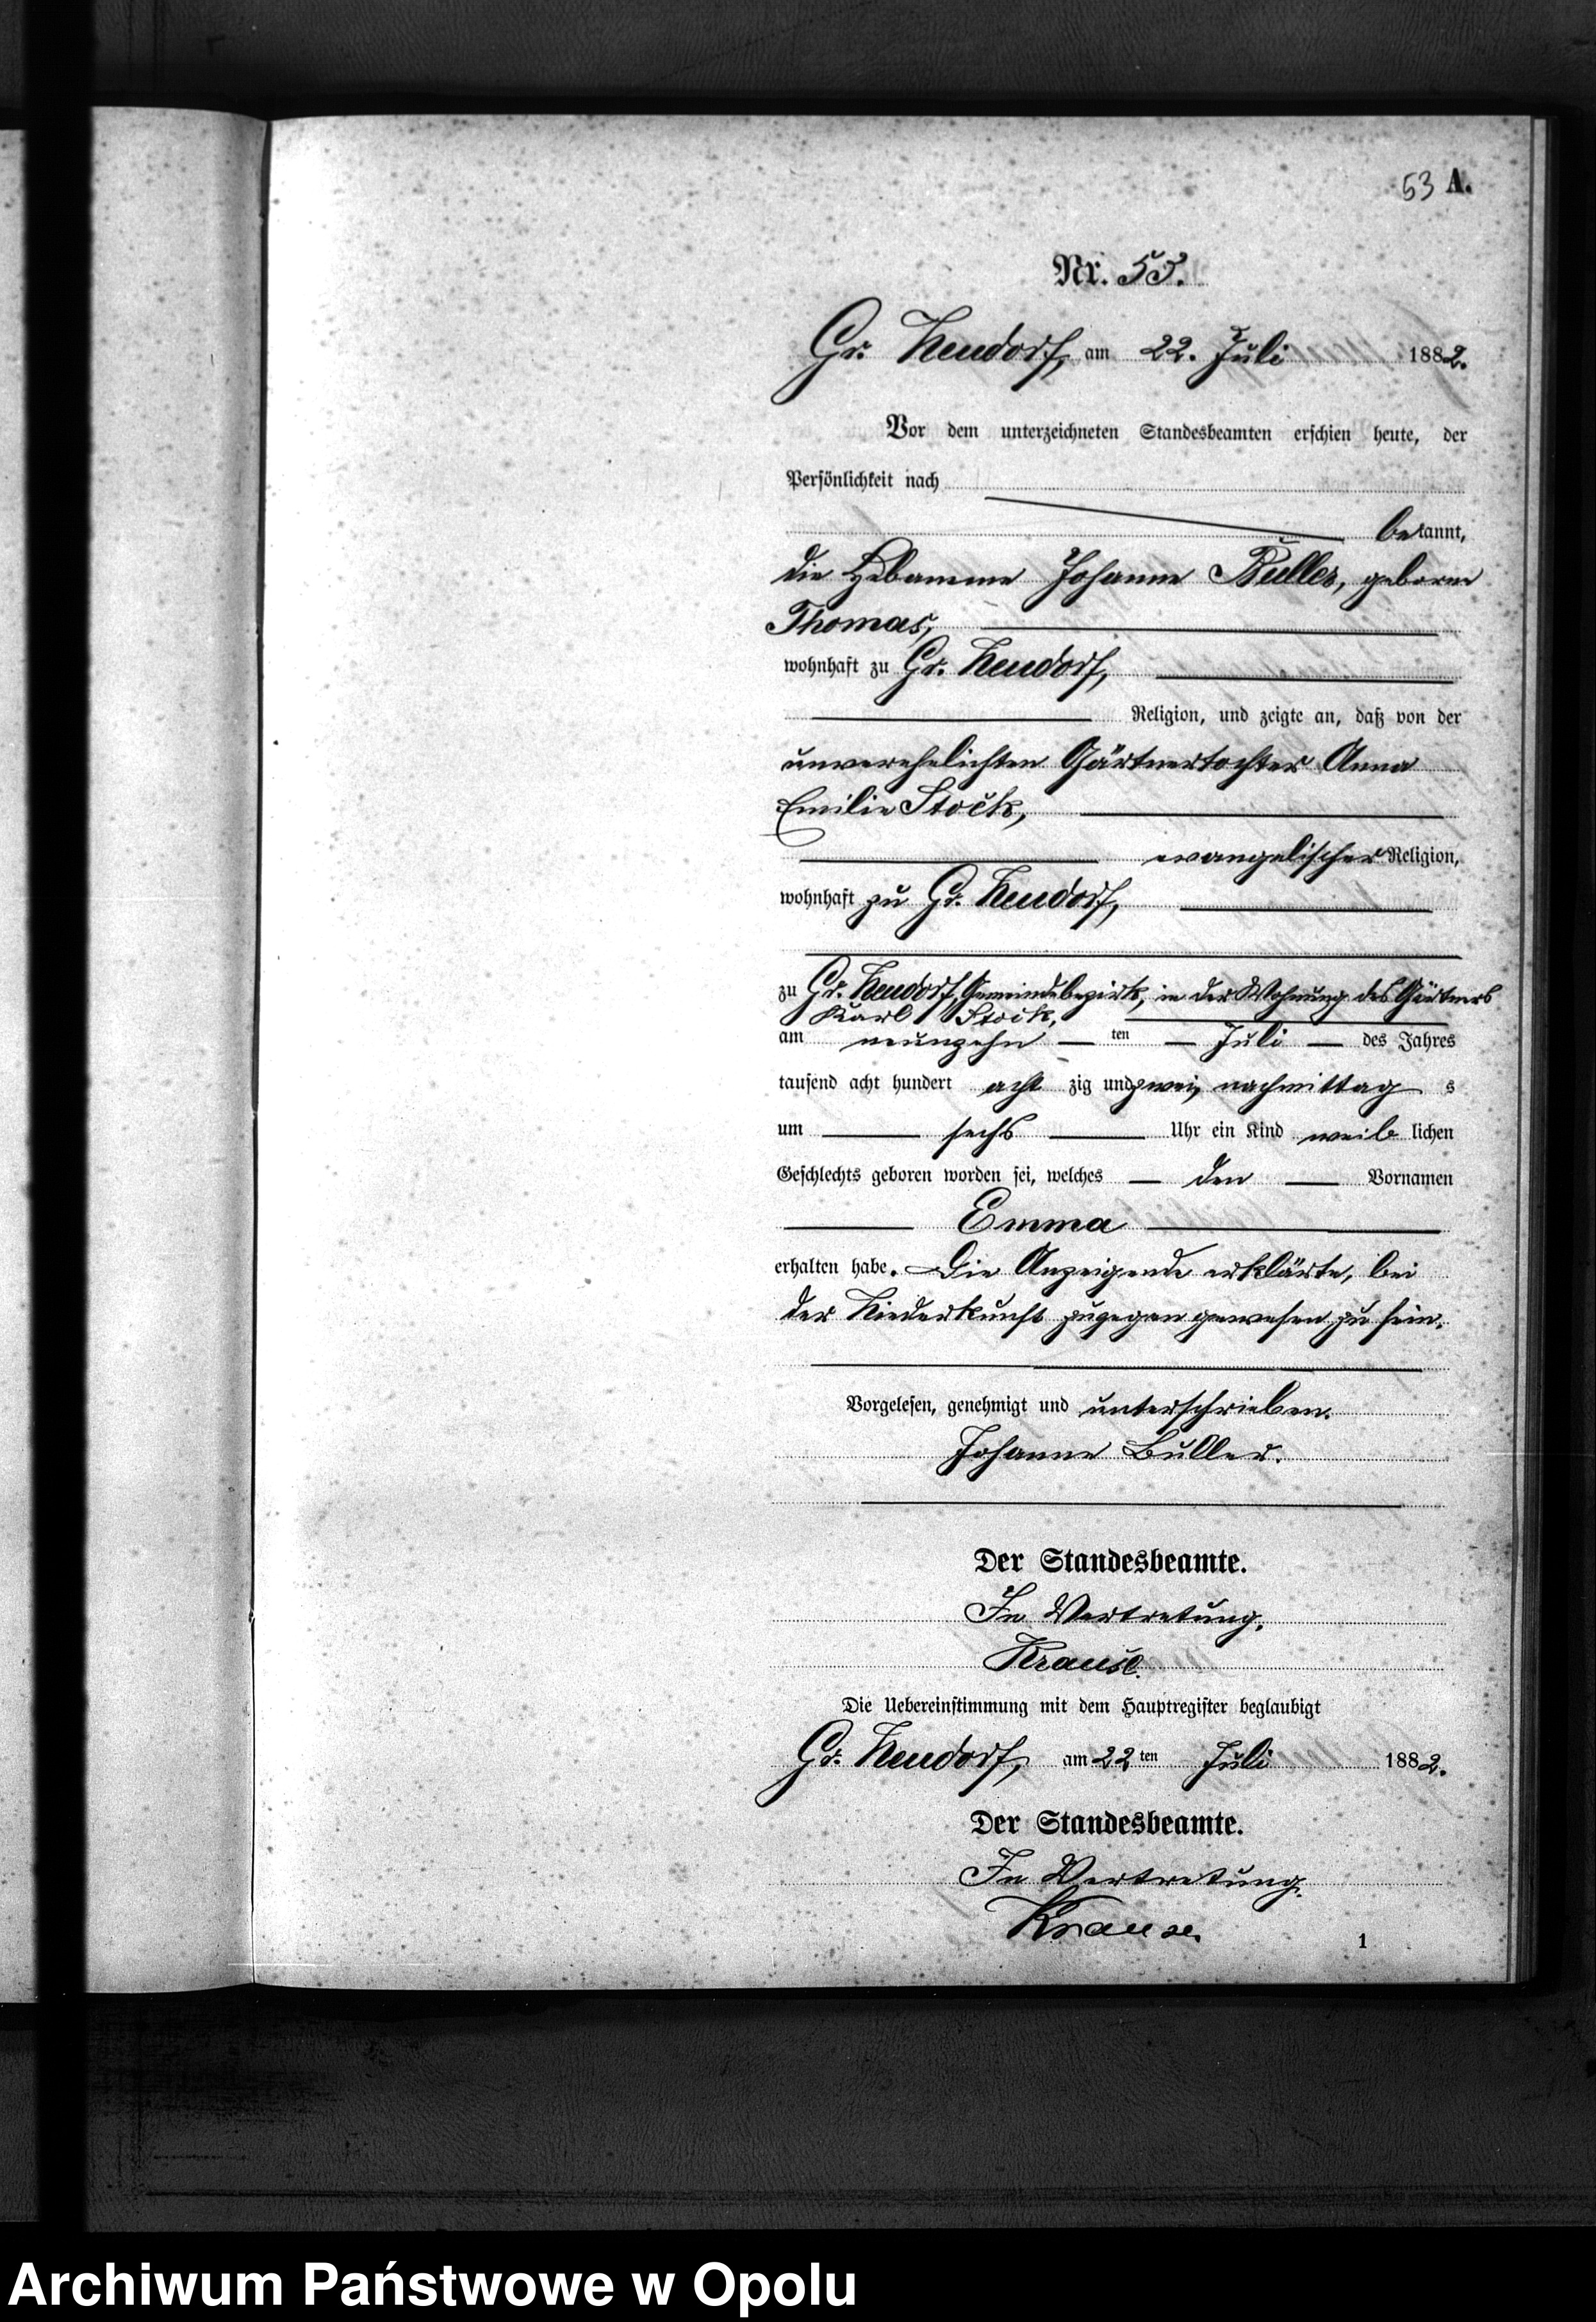 53 A.
Nr. 53.
Gr. Neudorf, am 22. Juli 1882.
Vor dem unterzeichneten Standesbeamten erschien heute, der
Persönlichkeit nach
bekannt,
die Hebamme Johanne Buller, geborene
Thomas,
wohnhaft zu Gr. Neudorf,
Religion, und zeigte an, daß von der
unverehelichten Gärtnertochter Anna
Emilie Stock,
evangelischer Religion,
wohnhaft zu Gr. Neudorf,
zu Gr. Neudorf, Gemeindebezirk, in der Wohnung des Gärtners
Karl Stock,
am neunzehn ten Juli des Jahres
tausend acht hundert acht zig und zwei, nachmittag s
um sechs Uhr ein Kind weib lichen
Geschlechts geboren worden sei, welches den Vornamen
Emma
erhalten habe. Die Anzeigende erklärte, bei
der Niederkunft zugegen gewesen zu sein.
Vorgelesen, genehmigt und unterschrieben.
Johanne Buller.
Der Standesbeamte.
In Vertretung.
Krause.
Die Uebereinstimmung mit dem Hauptregister beglaubigt
Gr. Neudorf, am 22 ten Juli 1882.
Der Standesbeamte.
In Vertretung.
Krause.
1
Archiwum Państwowe w Opolu